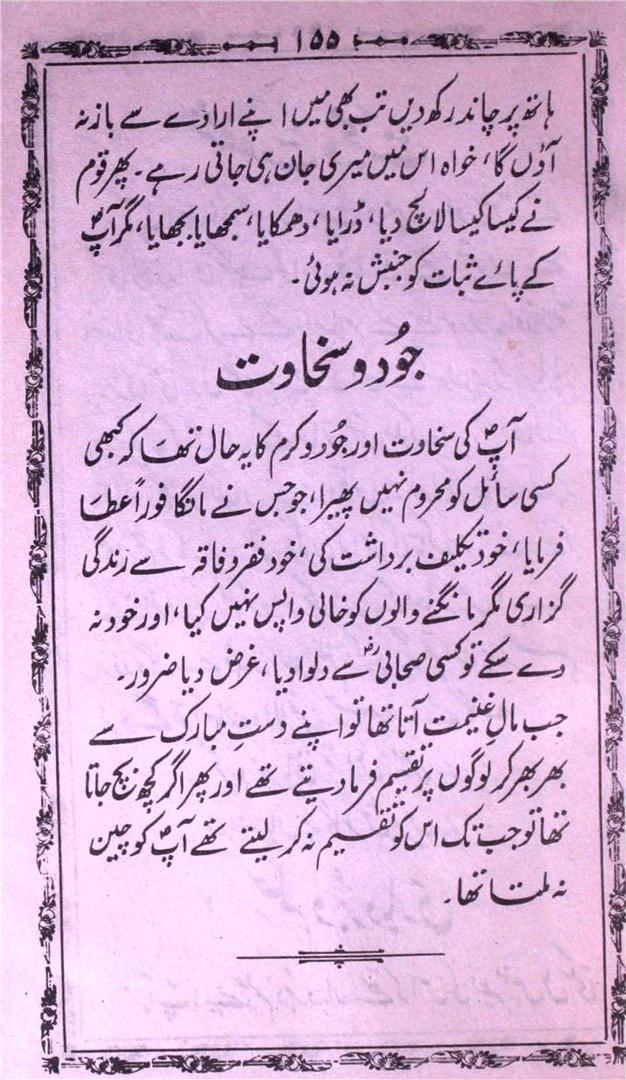 ۱۵۵
ہاتھ پر چاند رکھ دیں تب بھی میں اپنے ارادے سے باز نہ
آؤں گا، خواہ اس میں میری جان ہی جاتی رہے۔ پھر قوم
نے کیسا کیسا لالچ دیا، ڈرایا، دھمکایا، سمجھایا بجھایا، مگر آپؐ
کے پائے ثبات کو جنبش نہ ہوئی۔
جُود و سخاوت
آپؐ کی سخاوت اور جُود و کرم کا یہ حال تھا کہ کبھی
کسی سائل کو محروم نہیں پھیرا، جو جس نے مانگا فوراً عطا
فرمایا، خود تکلیف برداشت کی، خود فقر و فاقہ سے زندگی
گزاری مگر مانگنے والوں کو خالی واپس نہیں کیا، اور خود نہ
دے سکے تو کسی صحابیؓ سے دلوا دیا، غرض دیا ضرور۔
جب مالِ غنیمت آتا تھا تو اپنے دستِ مبارک سے
بھر بھر کر لوگوں پر تقسیم فرما دیتے تھے اور پھر اگر کچھ بچ جاتا
تھا تو جب تک اس کو تقسیم نہ کر لیتے تھے آپؐ کو چین
نہ ملتا تھا۔